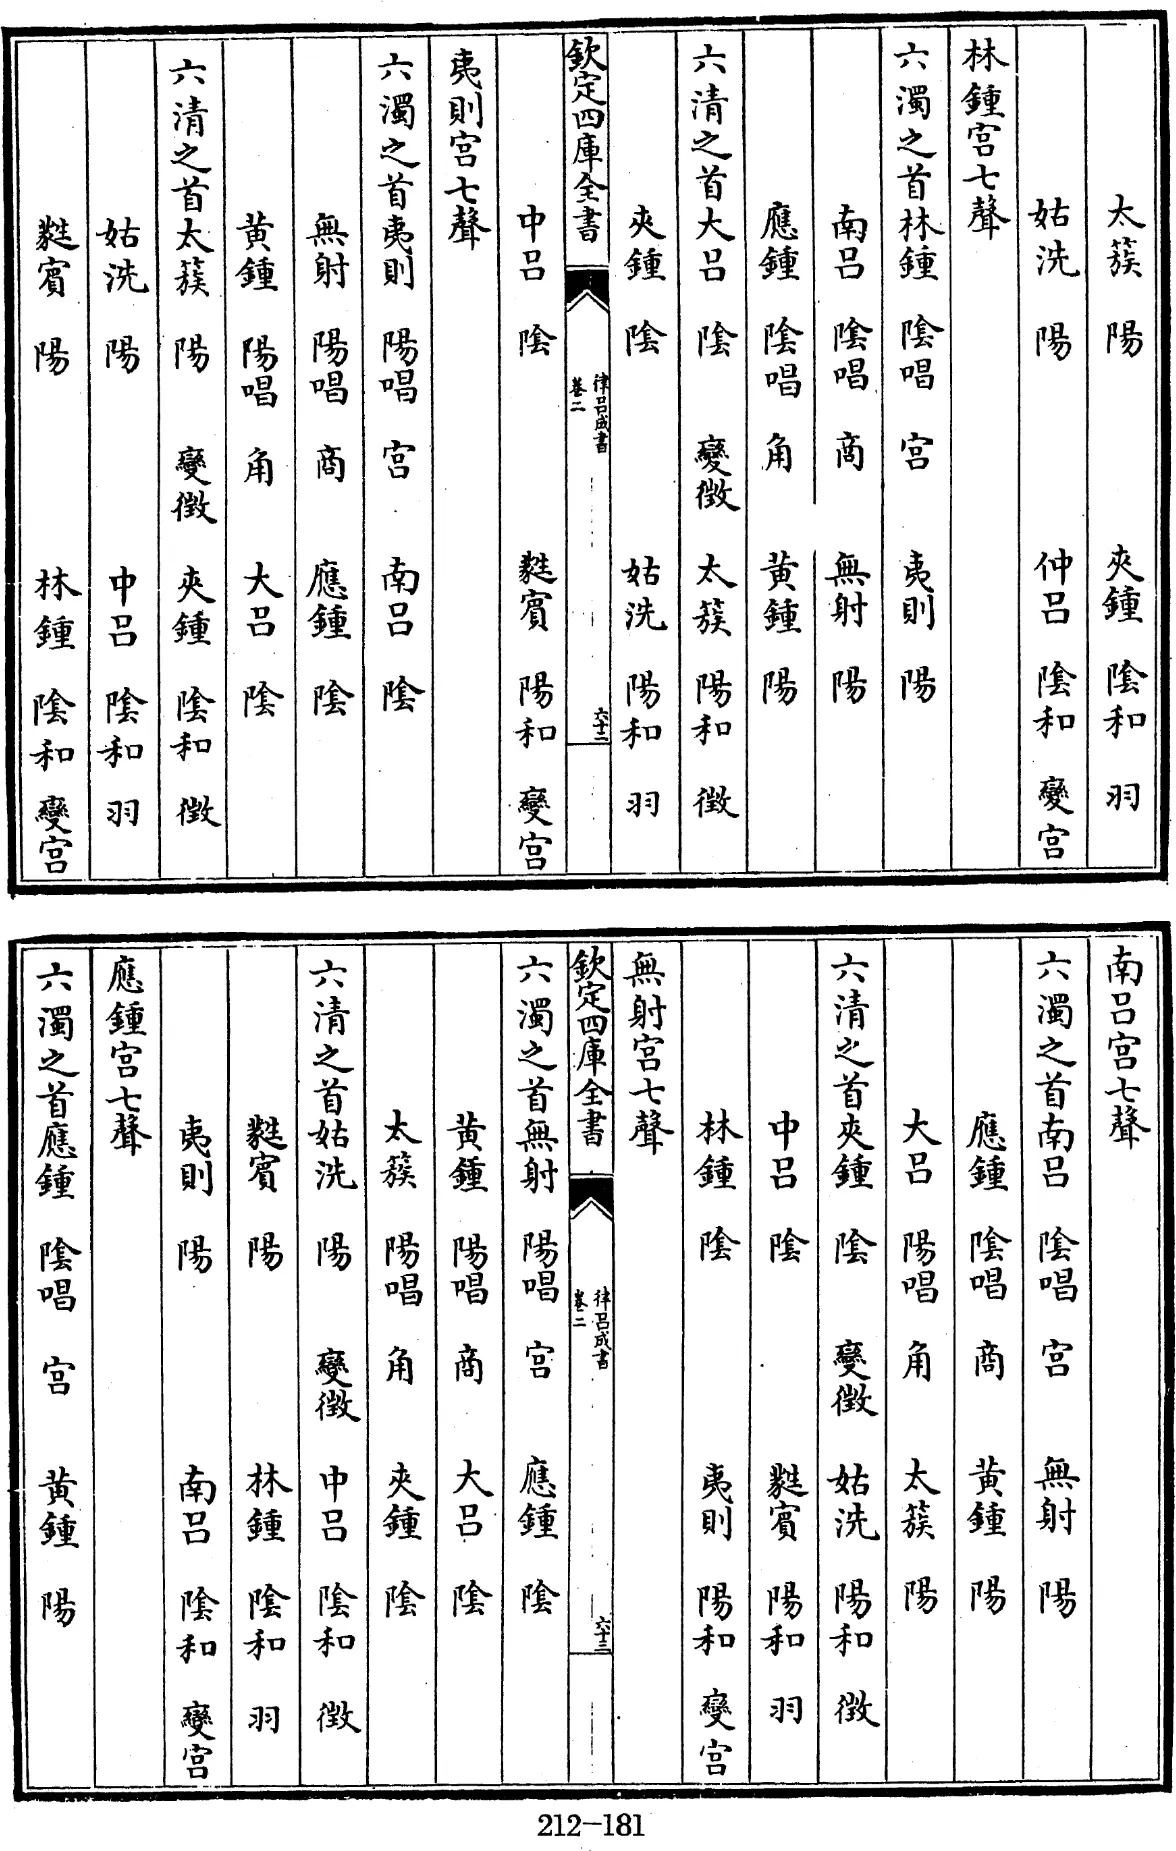 太簇 陽 夾鍾 陰和 羽
姑洗 陽 仲呂 陰和 變宮
林鍾宮七聲
六濁之首林鍾 陰唱 宮 夷則 陽
南呂 陰唱 商 無射 陽
應鍾 陰唱 角 黃鍾 陽
六清之首大呂 陰 變徵 太簇 陽和 徵
夾鍾 陰 姑洗 陽和 羽
欽定四庫全書 律呂成書 卷二 六十二
中呂 陰 蕤賓 陽和 變宮
夷則宮七聲
六濁之首夷則 陽唱 宮 南呂 陰
無射 陽唱 商 應鍾 陰
黃鍾 陽唱 角 大呂 陰
六清之首太簇 陽 變徵 夾鍾 陰和 徵
姑洗 陽 中呂 陰和 羽
蕤賓 陽 林鍾 陰和 變宮
南呂宮七聲
六濁之首南呂 陰唱 宮 無射 陽
應鍾 陰唱 商 黃鍾 陽
大呂 陽唱 角 太簇 陽
六清之首夾鍾 陰 變徵 姑洗 陽和 徵
中呂 陰 蕤賓 陽和 羽
林鍾 陰 夷則 陽和 變宮
無射宮七聲
欽定四庫全書 律呂成書 卷二 六十三
六濁之首無射 陽唱 宮 應鍾 陰
黃鍾 陽唱 商 大呂 陰
太簇 陽唱 角 夾鍾 陰
六清之首姑洗 陽 變徵 中呂 陰和 徵
蕤賓 陽 林鍾 陰和 羽
夷則 陽 南呂 陰和 變宮
應鍾宮七聲
六濁之首應鍾 陰唱 宮 黃鍾 陽
212-181